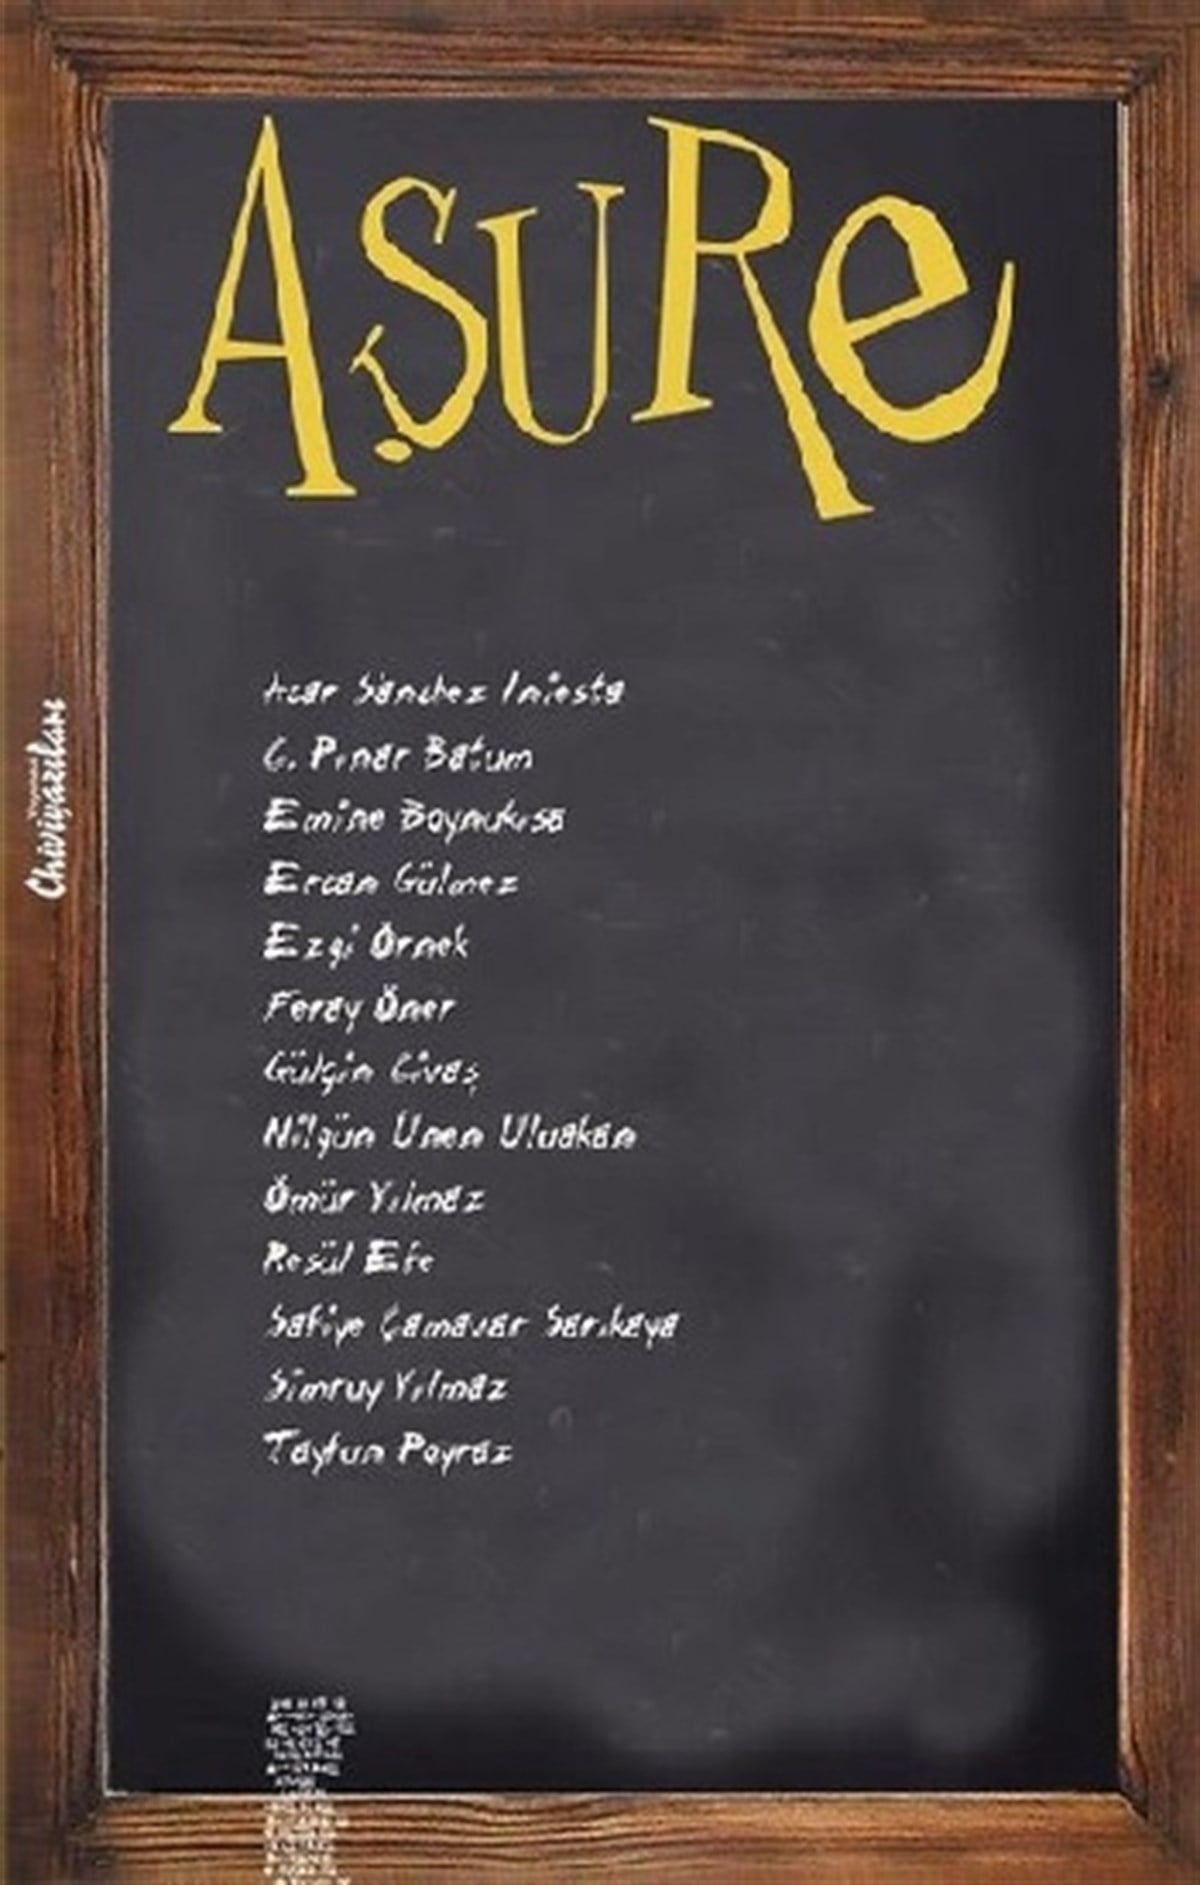 AŞURe
Acar Sanchez Iniesta
G. Pınar Batum
Emine Boynukısa
Ercan Gülmez
Ezgi Örnek
Feray Öner
Gülçin Civaş
Nilgün Unen Uluakan
Ömür Yılmaz
Resül Efe
Safiye Çamavar Sarıkaya
Simruy Yılmaz
Tayfun Poyraz
Chiviyazıları